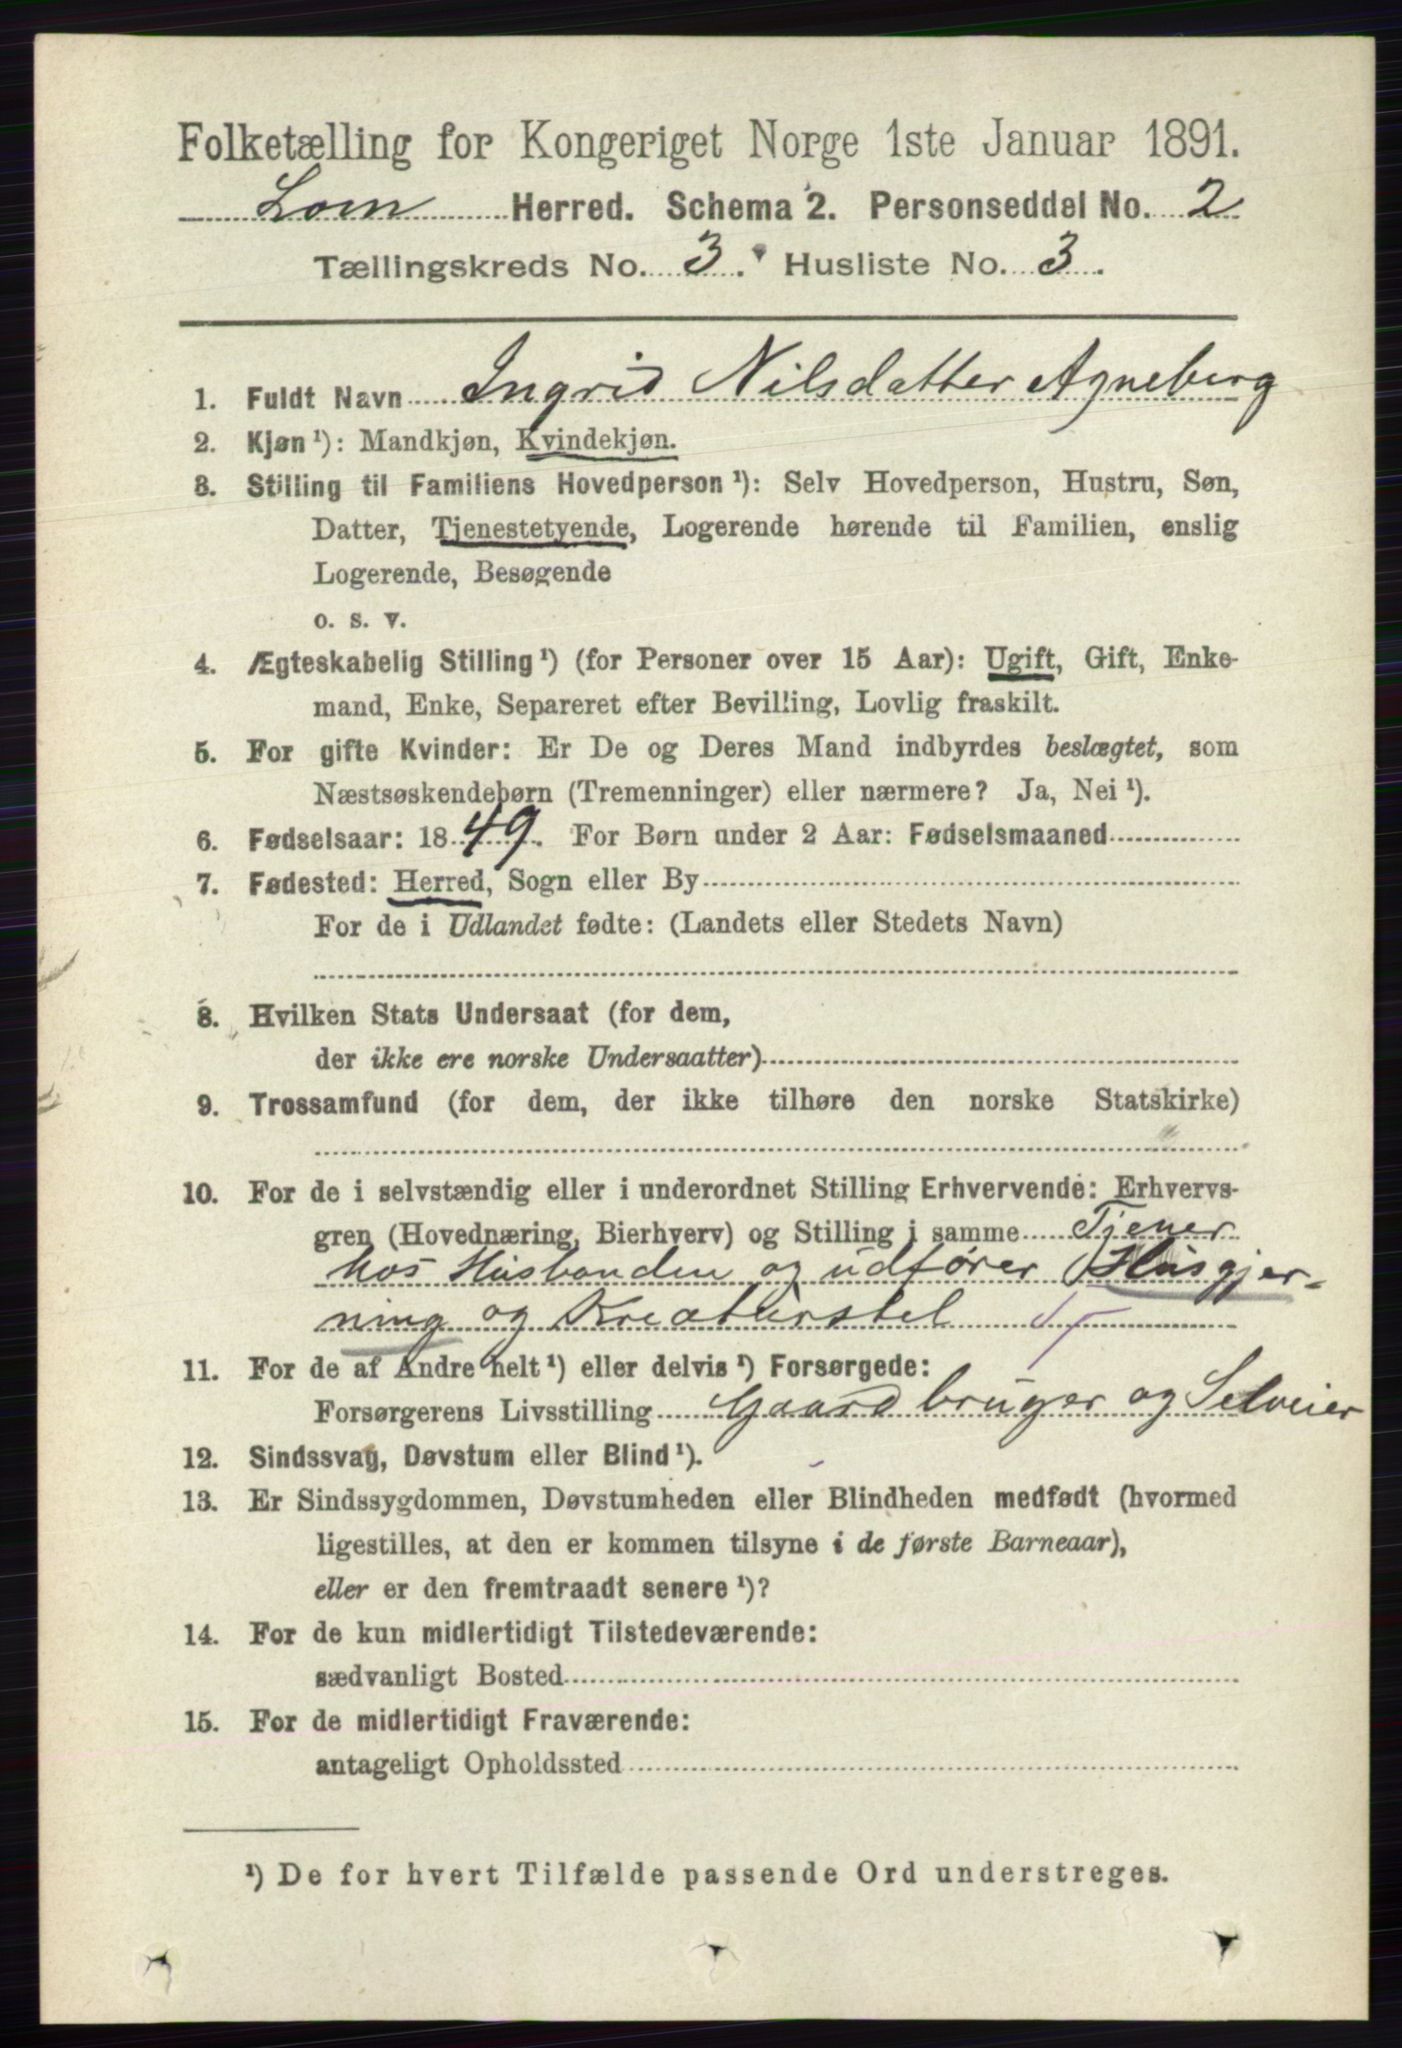 Folketælling for Kongeriget Norge 1ste Januar 1891.
Lom Herred. Schema 2. Personseddel No. 2
Tællingskreds No. 3. Husliste No. 3.
1. Fuldt Navn Ingrid Nilsdatter Agneberg
2. Kjøn ¹): Mandkjøn, Kvindekjøn.
3. Stilling til Familiens Hovedperson ¹): Selv Hovedperson, Hustru, Søn,
Datter, Tjenestetyende, Logerende hørende til Familien, enslig
Logerende, Besøgende
o. s. v.
4. Ægteskabelig Stilling ¹) (for Personer over 15 Aar): Ugift, Gift, Enke-
mand, Enke, Separeret efter Bevilling, Lovlig fraskilt.
5. For gifte Kvinder: Er De og Deres Mand indbyrdes beslægtet, som
Næstsøskendebørn (Tremenninger) eller nærmere? Ja, Nei ¹).
6. Fødselsaar: 1849. For Børn under 2 Aar: Fødselsmaaned
7. Fødested: Herred, Sogn eller By
For de i Udlandet fødte: (Landets eller Stedets Navn)
8. Hvilken Stats Undersaat (for dem,
der ikke ere norske Undersaatter)
9. Trossamfund (for dem, der ikke tilhøre den norske Statskirke)
10. For de i selvstændig eller i underordnet Stilling Erhvervende: Erhvervs-
gren (Hovednæring, Bierhverv) og Stilling i samme Tjener
hos Husbonden og udfører Husgjer-
ning og Kreaturstel
11. For de af Andre helt ¹) eller delvis ¹) Forsørgede:
Forsørgerens Livsstilling Gaardbruger og Selveier
12. Sindssvag, Døvstum eller Blind ¹).
13. Er Sindssygdommen, Døvstumheden eller Blindheden medfødt (hvormed
ligestilles, at den er kommen tilsyne i de første Barneaar),
eller er den fremtraadt senere ¹)?
14. For de kun midlertidigt Tilstedeværende:
sædvanligt Bosted
15. For de midlertidigt Fraværende:
antageligt Opholdssted
¹) De for hvert Tilfælde passende Ord understreges.